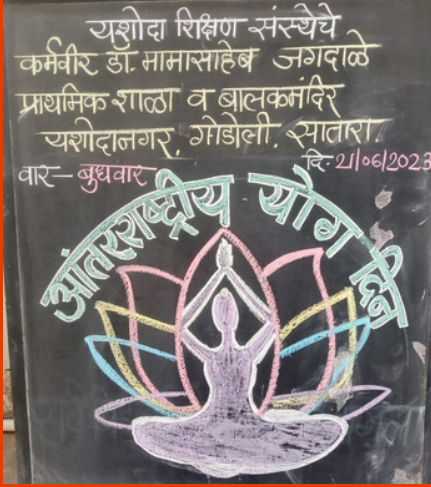 यशोदा शिक्षण संस्थेचे
कर्मवीर डॉ. मामासाहेब जगदाळे
प्राथमिक शाळा व बालकमंदिर
यशोदानगर, गोडोली, सातारा.
वार - बुधवार दि. 21/06/2023
आंतरराष्ट्रीय योग दिन